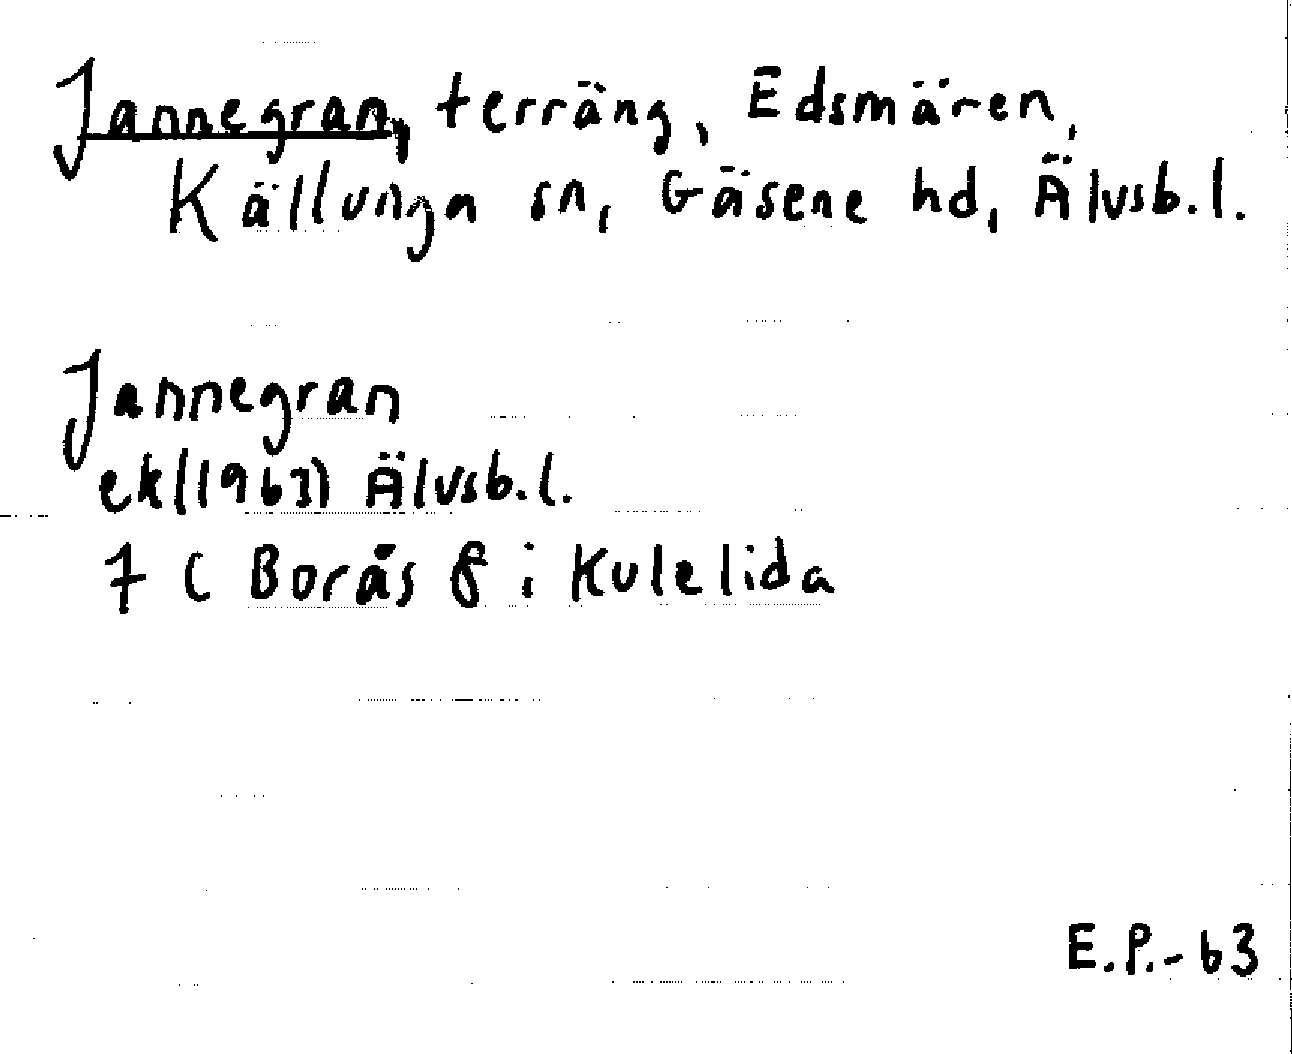 Jannegran, terräng, Edsmären,
Källunga sn, Gäsene hd, Älvsb.l.
Jannegran
ek (1963) Älvsb.l.
7 C Borås f i Kulelida
E.P.-63